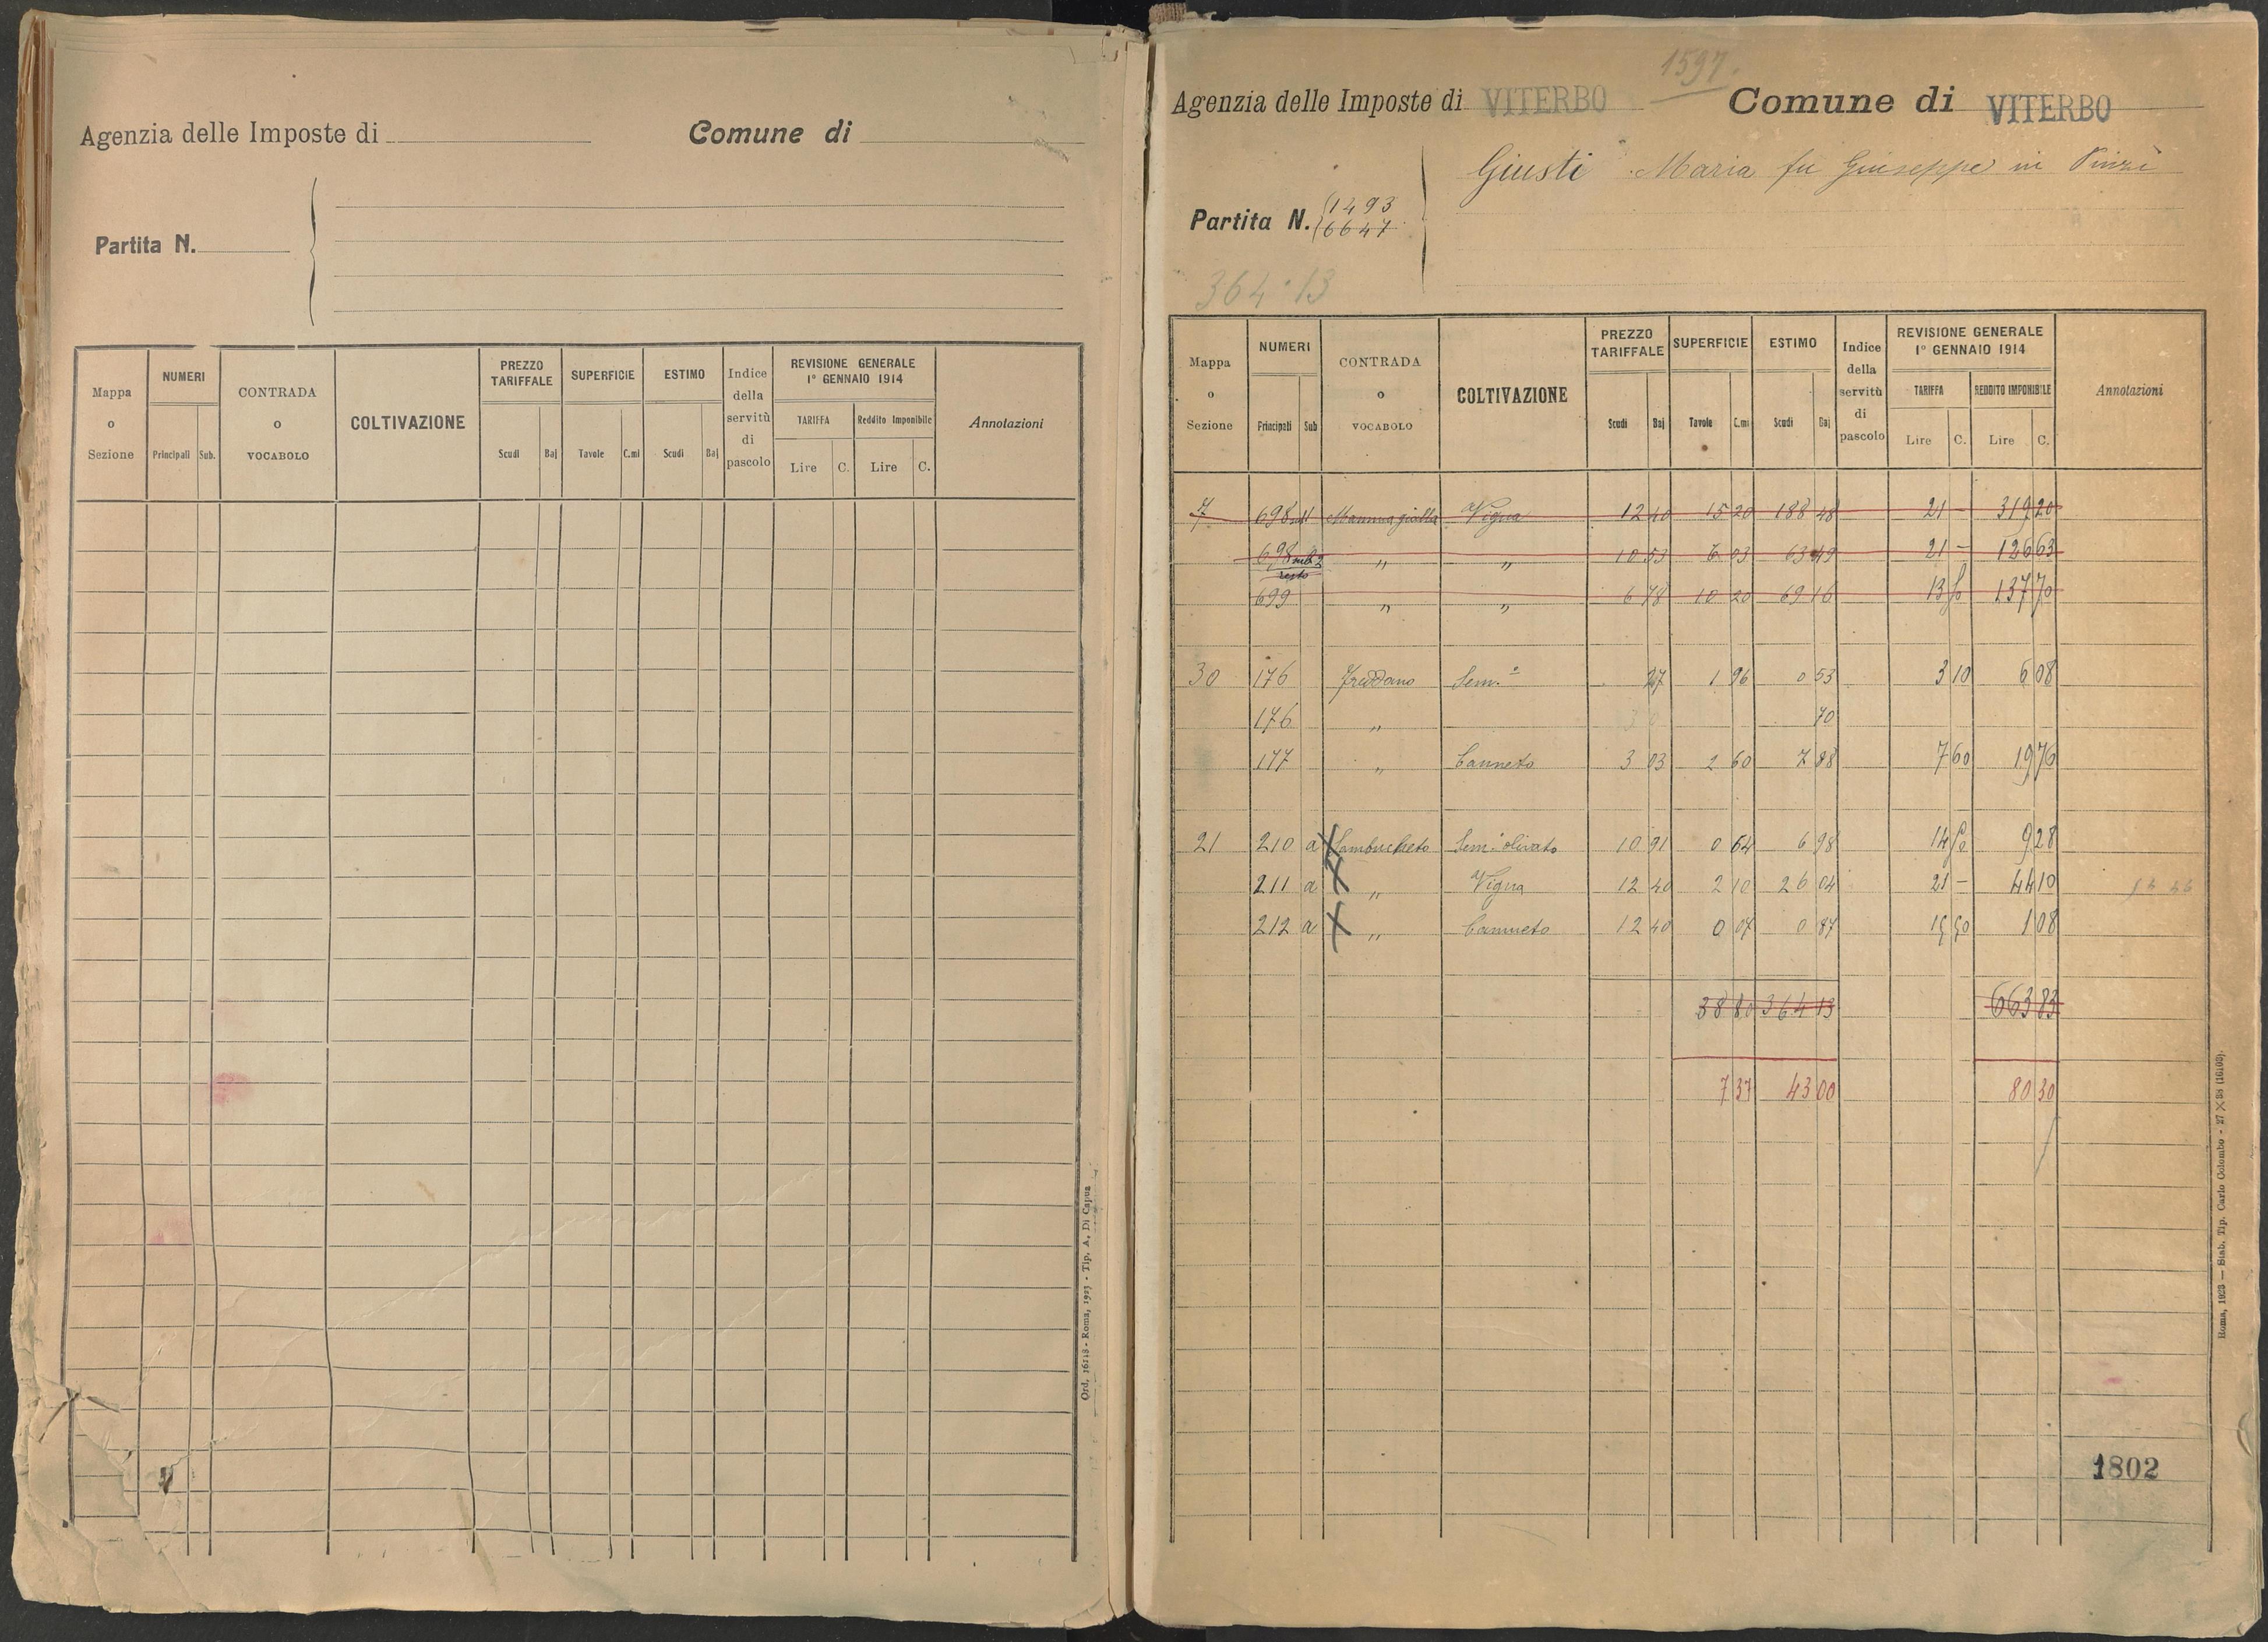 Agenzia delle Imposte di Comune di
Partita N.
Mappa o Sezione NUMERI Principali Sub. CONTRADA o VOCABOLO COLTIVAZIONE PREZZO TARIFFALE Scudi Baj SUPERFICIE Tavole C.mi ESTIMO Scudi Baj Indice della servitù di pascolo REVISIONE GENERALE 1° GENNAIO 1914 TARIFFA Lire C. Reddito Imponibile Lire C. Annotazioni
Ord. 16218 - Roma, 1923 - Tip. A. Di Capua
1597.
Agenzia delle Imposte di VITERBO Comune di VITERBO
Giusti Maria fu Giuseppe in Pinzi
Partita N. 1493
6647
364.13
Mappa o Sezione NUMERI Principali Sub CONTRADA o VOCABOLO COLTIVAZIONE PREZZO TARIFFALE Scudi Baj SUPERFICIE Tavole C.mi ESTIMO Scudi Baj Indice della servitù di pascolo REVISIONE GENERALE 1° GENNAIO 1914 TARIFFA Lire C. REDDITO IMPONIBILE Lire C. Annotazioni
7 698 Mammagialla Vigna 12 40 15 20 188 48 21 - 319 20
698 sub 2 resto " " 10 53 6 03 63 49 21 - 126 63
699 " " 6 78 10 20 69 16 13 50 137 70
30 176 Freddano Sem.o 27 1 96 0 53 3 10 6 08
176 " 70
177 " Canneto 3 03 2 60 7 88 7 60 19 76
21 210 a Sambucheto Sem. olivato 10 91 0 64 6 98 14 50 9 28
211 a " Vigna 12 40 2 10 26 04 21 - 44 10
212 a " Canneto 12 40 0 07 0 87 15 50 1 08
38 80 364 13 663 83
7 37 43 00 80 30
1802
Roma, 1923 — Stab. Tip. Carlo Colombo - 27 X 38 (16108).